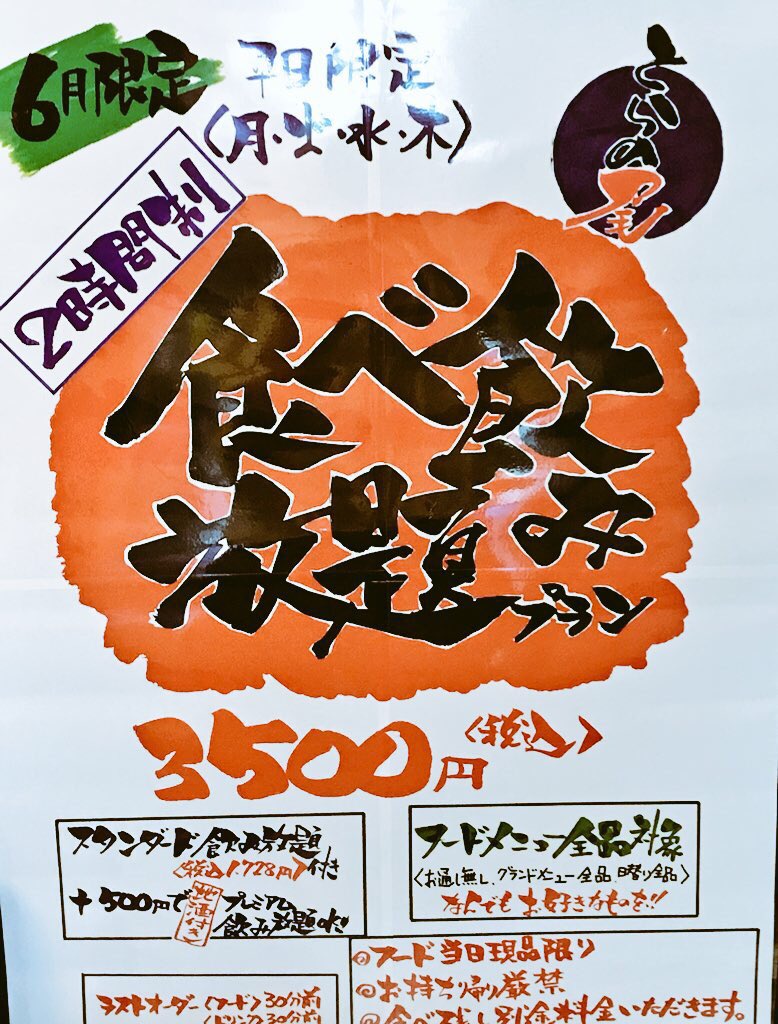 6月限定
平日限定
〈月・火・水・木〉
とらの尾
2時間制
食べ飲み
放題プラン
3500円〈税込〉
スタンダード飲み放題
〈税込1.728円〉付き
+500円で地酒付きプレミアム
飲み放題に!!
フードメニュー全品対象
〈お通し無し、グランドメニュー全品 日替り全品〉
なんでもお好きなものを!!
ラストオーダー〈フード〉30分前
〈ドリンク〉30分前
◎フード当日現品限り
◎お持ち帰り厳禁
◎食べ残し別途料金いただきます。